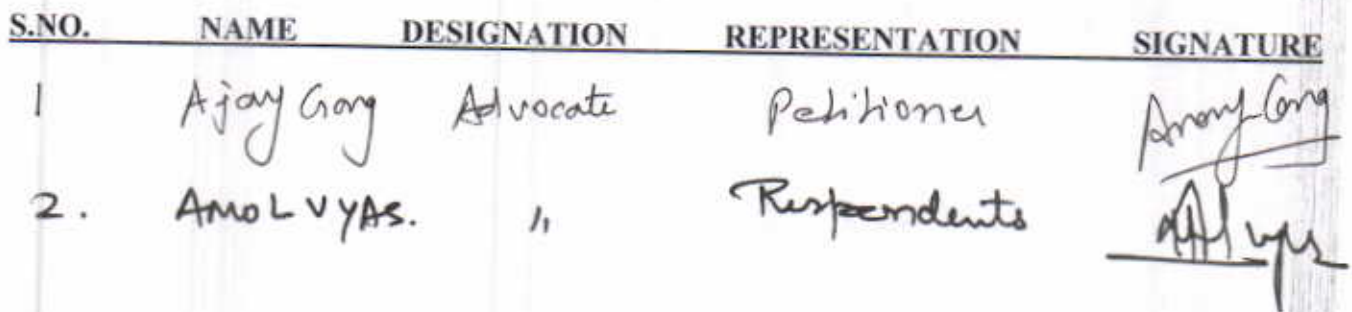 S.NO. NAME DESIGNATION REPRESENTATION SIGNATURE
1 Ajay Garg Advocate Petitioner
2. AMOL VYAS. 〃 Respondents